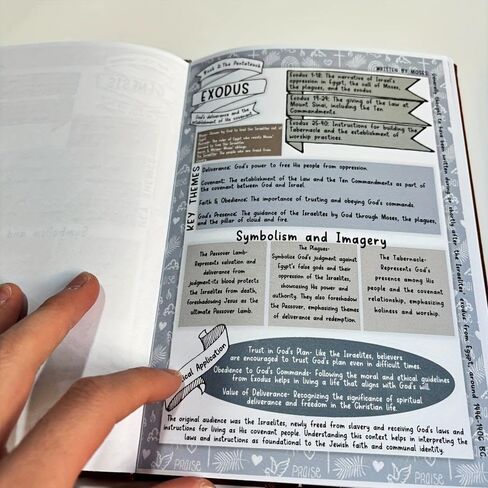 Book 2: The Pentateuch
EXODUS
God's deliverance and the
establishment of the covenant
Exodus 1-18: The narrative of Israel's
oppression in Egypt, the call of Moses,
the plagues, and the exodus.
Exodus 19-24: The giving of the Law at
Mount Sinai, including the Ten
Commandments.
Exodus 25-40: Instructions for building the
Tabernacle and the establishment of
worship practices.
WRITTEN BY MOSES
KEY THEMES
Deliverance: God's power to free His people from oppression.
Covenant: The establishment of the Law and the Ten Commandments as part of
the covenant between God and Israel.
Faith & Obedience: The importance of trusting and obeying God's commands.
God's Presence: The guidance of the Israelites by God through Moses, the plagues,
and the pillar of cloud and fire.
Symbolism and Imagery
The Passover Lamb-
Represents salvation and
deliverance from
judgment-its blood protects
the Israelites from death,
foreshadowing Jesus as the
ultimate Passover Lamb.
The Plagues-
Symbolize God's judgment against
Egypt's false gods and their
oppression of the Israelites,
showcasing His power and
authority. They also foreshadow
the Passover, emphasizing themes
of deliverance and redemption.
The Tabernacle-
Represents God's
presence among His
people and the covenant
relationship, emphasizing
holiness and worship.
ical Application
Trust in God's Plan- Like the Israelites, believers
are encouraged to trust God's plan even in difficult times.
Obedience to God's Commands- Following the moral and ethical guidelines
from Exodus helps in living a life that aligns with God's will.
Value of Deliverance- Recognizing the significance of spiritual
deliverance and freedom in the Christian life.
The original audience was the Israelites, newly freed from slavery and receiving God's laws and
instructions for living as His covenant people. Understanding this context helps in interpreting the
laws and instructions as foundational to the Jewish faith and communal identity.
PRAISE
PRAISE